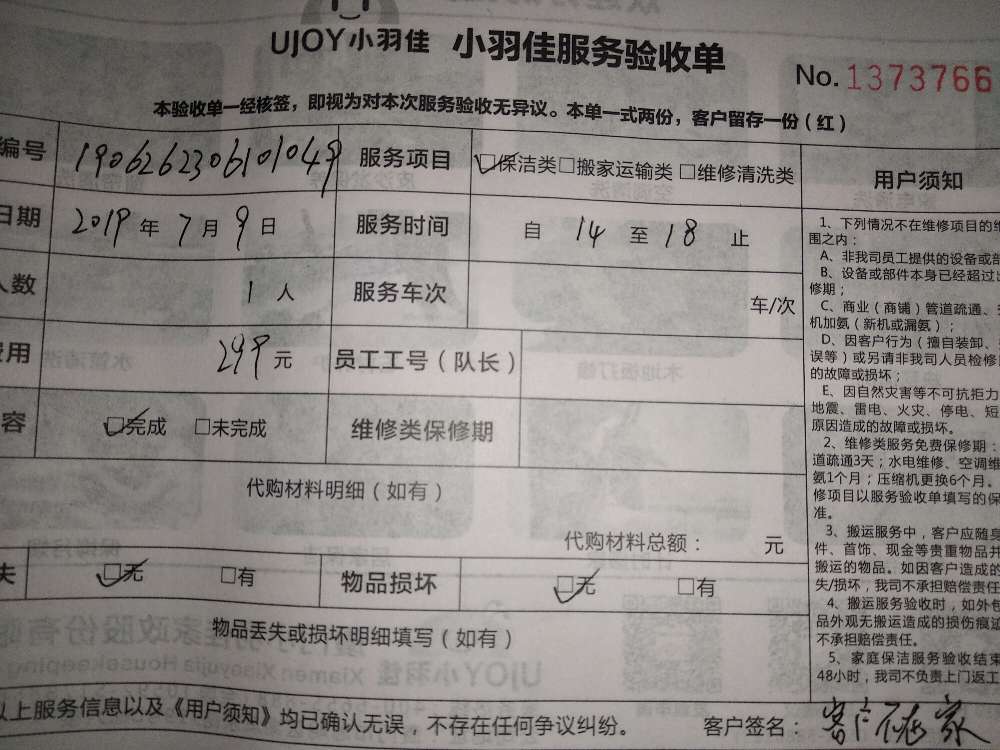 UJOY小羽佳 小羽佳服务验收单
No.1373766
本验收单一经核签，即视为对本次服务验收无异议。本单一式两份，客户留存一份（红）
编号 190626230610104 服务项目 保洁类 □搬家运输类 □维修清洗类
日期 2019 年 7 月 9 日 服务时间 自 14 至 18 止
人数 1 人 服务车次 车/次
费用 299 元 员工工号（队长）
容 完成 □未完成 维修类保修期
代购材料明细（如有）
代购材料总额： 元
失 无 □有 物品损坏 无 □有
物品丢失或损坏明细填写（如有）
以上服务信息以及《用户须知》均已确认无误，不存在任何争议纠纷。 客户签名：客户不在家
用户须知
1、下列情况不在维修项目的维
围之内：
A、非我司员工提供的设备或部
B、设备或部件本身已经超过
修期；
C、商业（商铺）管道疏通、
机加氨（新机或漏氨）；
D、因客户行为（擅自装卸、
误等）或另请非我司人员检修
的故障或损坏；
E、因自然灾害等不可抗拒力
地震、雷电、火灾、停电、短
原因造成的故障或损坏。
2、维修类服务免费保修期：
道疏通3天；水电维修、空调维
氨1个月；压缩机更换6个月。
修项目以服务验收单填写的保
准。
3、搬运服务中，客户应随身
件、首饰、现金等贵重物品并
搬运的物品。如因客户造成的
失/损坏，我司不承担赔偿责任
4、搬运服务验收时，如外包
品外观无搬运造成的损伤痕迹
不承担赔偿责任。
5、家庭保洁服务验收结束
48小时，我司不负责上门返工